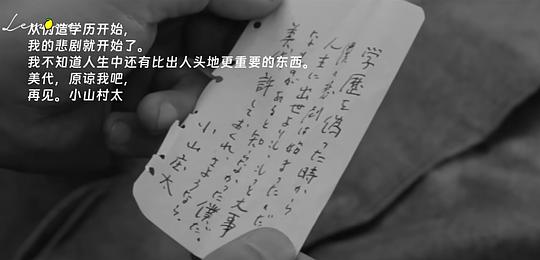 从伪造学历开始,
我的悲剧就开始了。
我不知道人生中还有比出人头地更重要的东西。
美代，原谅我吧,
再见。小山村太
学歴を偽った時から
悲劇は始まったんだ
人生に出世よりもっと大事
があると知らなかった僕だ。
許しておくれ、さようなら。
小山庄太